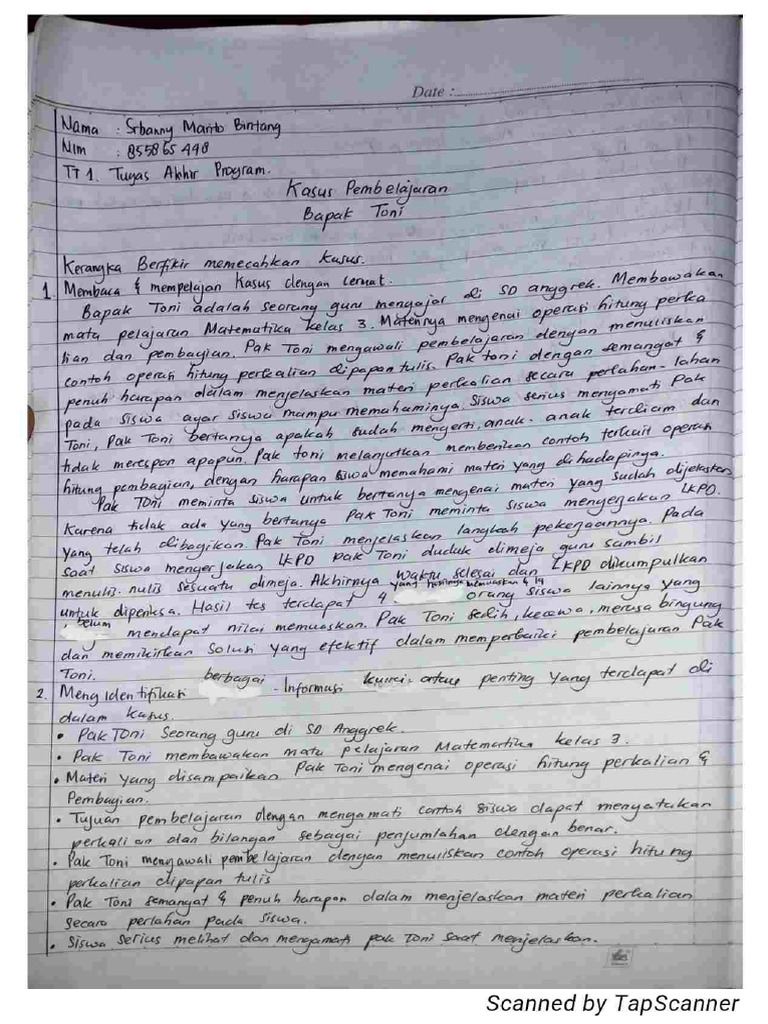 Date :
Nama : Srbanny Marito Bintang
Nim : 855865498
TT 1. Tugas Akhir Program.
Kasus Pembelajaran
Bapak Toni
Kerangka Berfikir memecahkan kasus.
1. Membaca & mempelajari Kasus dengan cermat.
Bapak Toni adalah seorang guru mengajar di SD anggrek. Membawakan
mata pelajaran Matematika kelas 3. Materinya mengenai operasi hitung perka
lian dan pembagian. Pak Toni mengawali pembelajaran dengan menuliskan
contoh operasi hitung perkalian dipapan tulis. Pak toni dengan semangat &
penuh harapan dalam menjelaskan materi perkalian secara perlahan-lahan
pada siswa agar siswa mampu memahaminya. Siswa serius mengamati Pak
Toni, Pak Toni bertanya apakah sudah mengerti, anak-anak terdiam dan
tidak merespon apapun. Pak toni melanjutkan memberikan contoh terkait operasi
hitung pembagian, dengan harapan siswa memahami materi yang dihadapinya.
Pak Toni meminta siswa untuk bertanya mengenai materi yang sudah dijelaskan
Karena tidak ada yang bertanya Pak Toni meminta siswa mengerjakan LKPD.
Yang telah dibagikan. Pak Toni menjelaskan langkah pekerjaannya. Pada
saat siswa mengerjakan LKPD Pak Toni duduk dimeja guru sambil
menulis-nulis sesuatu dimeja. Akhirnya waktu selesai dan LKPD dikumpulkan
untuk diperiksa. Hasil tes terdapat 4 yang hasilnya memuaskan & 19 orang siswa lainnya yang
belum mendapat nilai memuaskan. Pak Toni sedih, kecewa, merasa bingung
dan memikirkan solusi yang efektif dalam memperbaiki pembelajaran Pak
Toni.
2. Mengidentifikasi berbagai Informasi penting yang terdapat di
dalam kasus.
• Pak Toni Seorang guru di SD Anggrek.
• Pak Toni membawakan mata pelajaran Matematika kelas 3.
• Materi yang disampaikan Pak Toni mengenai operasi hitung perkalian &
Pembagian.
• Tujuan pembelajaran dengan mengamati contoh siswa dapat menyatakan
perkalian dan bilangan sebagai penjumlahan dengan benar.
• Pak Toni mengawali pembelajaran dengan menuliskan contoh operasi hitung
perkalian dipapan tulis
• Pak Toni semangat & penuh harapan dalam menjelaskan materi perkalian
secara perlahan pada siswa.
• Siswa serius melihat dan mengamati pak Toni saat menjelaskan.
Scanned by TapScanner